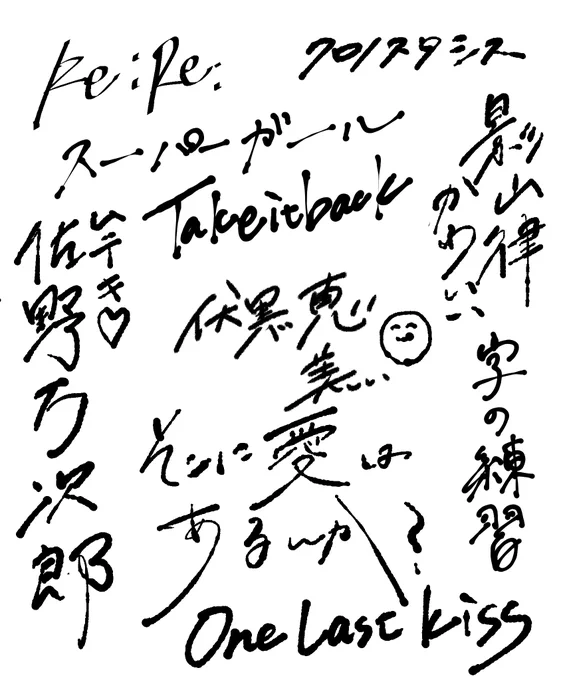 Re:Re:
クロノスタシス
スーパーガール
Take it back
影山律
かわいい
佐野万次郎
ムテキ♡
伏黒恵
美しい
そこに愛は
あるんか?
字の練習
One Last kiss